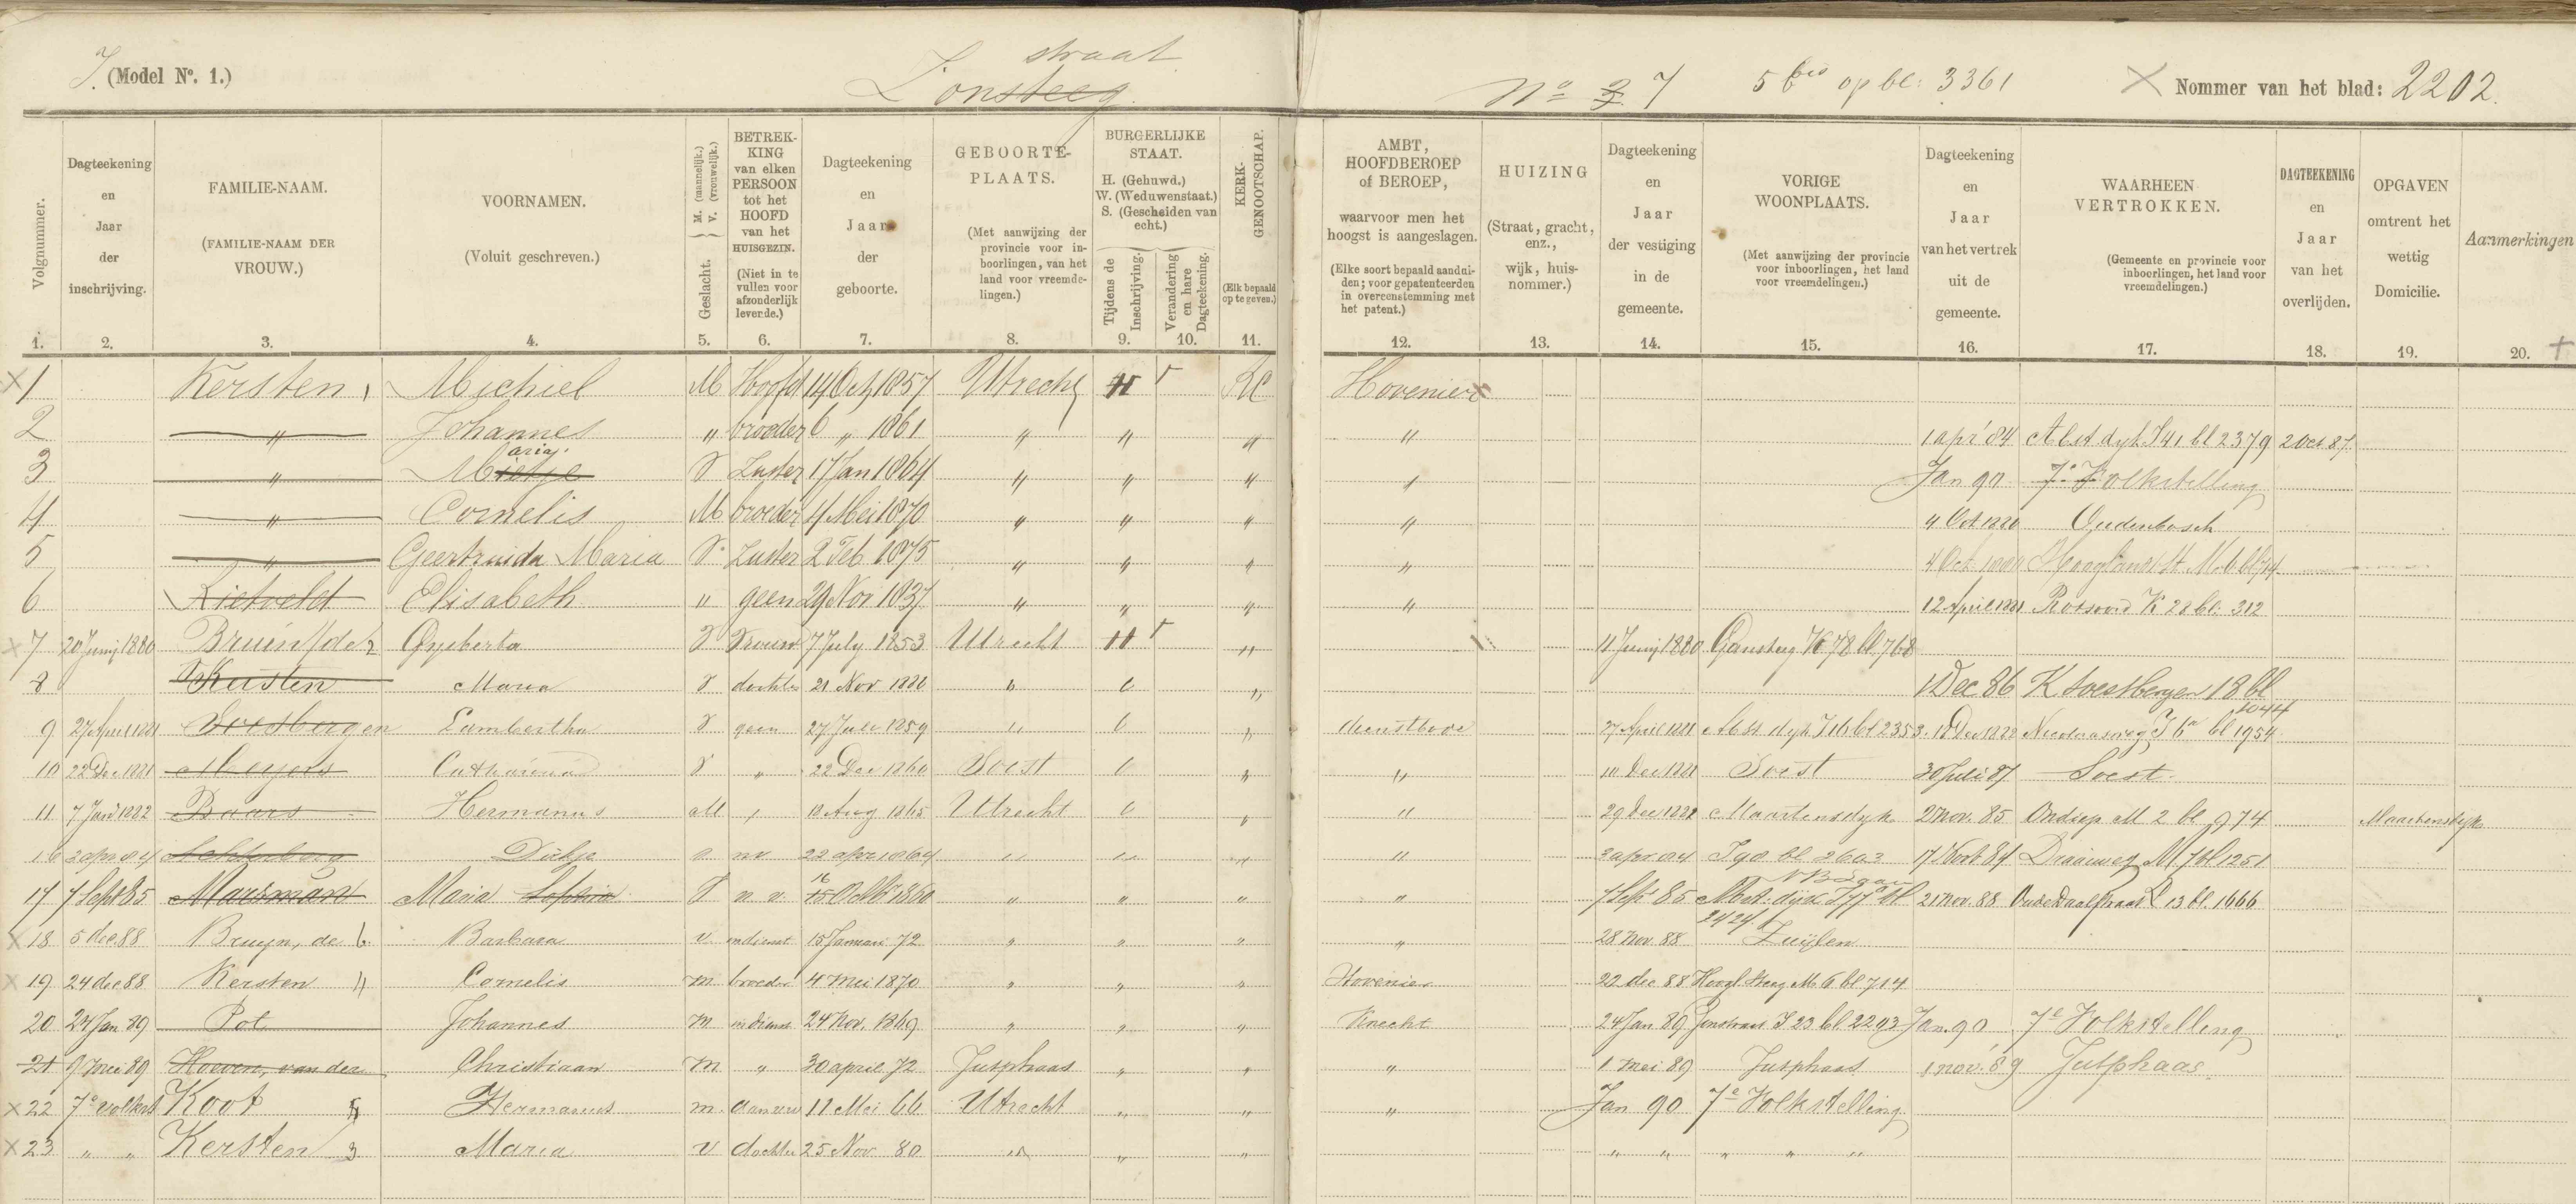 J. (Model No. 1.)
straat
Lonsteeg.
No 3. 7 5 bis op bl: 3361
Nommer van het blad: 2202.
Volgnummer. 1.
Dagteekening en Jaar der inschrijving. 2.
FAMILIE-NAAM. (FAMILIE-NAAM DER VROUW.) 3.
VOORNAMEN. (Voluit geschreven.) 4.
Geslacht. { M. (mannelijk.) V. (vrouwelijk.) 5.
BETREKKING van elken PERSOON tot het HOOFD van het HUISGEZIN. (Niet in te vullen voor afzonderlijk levende.) 6.
Dagteekening en Jaar der geboorte. 7.
GEBOORTE-PLAATS. (Met aanwijzing der provincie voor inboorlingen, van het land voor vreemdelingen.) 8.
BURGERLIJKE STAAT. H. (Gehuwd.) W. (Weduwenstaat.) S. (Gescheiden van echt.)
Tijdens de Inschrijving. 9.
Verandering en hare Dagteekening. 10.
KERK-GENOOTSCHAP. (Elk bepaald op te geven.) 11.
AMBT, HOOFDBEROEP of BEROEP, waarvoor men het hoogst is aangeslagen. (Elke soort bepaald aanduiden; voor gepatenteerden in overeenstemming met het patent.) 12.
HUIZING (Straat, gracht, enz., wijk, huisnommer.) 13.
Dagteekening en Jaar der vestiging in de gemeente. 14.
VORIGE WOONPLAATS. (Met aanwijzing der provincie voor inboorlingen, het land voor vreemdelingen.) 15.
Dagteekening en Jaar van het vertrek uit de gemeente. 16.
WAARHEEN VERTROKKEN. (Gemeente en provincie voor inboorlingen, het land voor vreemdelingen.) 17.
DAGTEEKENING en Jaar van het overlijden. 18.
OPGAVEN omtrent het wettig Domicilie. 19.
Aanmerkingen 20.
1 Kersten 1 Michiel M Hoofd 14 Oct 1857 Utrecht H RC Hovenier
2 " Johannes " broeder 6 " 1861 " " " " 1 apr '84 Abst. dyk J 41 bl 2379 2 Oct 87
3 " Mietje aria. V Zuster 17 Jan 1864 " " " " Jan 90 7e Volkstelling
4 " Cornelis M broeder 4 Mei 1870 " " " " 4 Oct 1880 Oudenbosch
5 " Geertruida Maria V Zuster 2 Feb 1875 " " " " 4 Oct Hooglandst. M 6 bl 714
6 Rietveld Elisabeth " geen 29 Nov 1837 " " " " 12 April 1881 K 28 bl: 312
7 20 Junij 1880 Bruin, de 2 Gysberta V Vrouw 7 July 1853 Utrecht H " 11 Junij 1880 Gansteeg K 78 bl 768
8 Kersten Maria V dochter 21 Nov 1880 " " " 1 Dec 86 K Soestbergen 18 bl 1044
9 27 April 1881 Soesbergen Lambertha V geen 27 Juli 1859 " " " dienstbode 27 April 1881 Abst. dyk J 16 bl 2353 18 Dec 1882 J 6a bl 1954
10 22 Dec 1881 Meyers Catharina V " 22 Dec 1860 Soest " " " 10 Dec 1881 Soest 30 Juli 87 Soest
11 7 Jan 1882 Baars Hermanus M " 18 Aug 1865 Utrecht " " " 29 Dec 1881 Maartensdyk 2 Nov. 85 Ondiep M 2 bl 974 Maartensdyk
16 3 apr 84 Achterberg Dirkje V nv 22 apr 1864 " " " " 3 apr 84 J 90 bl 2603 17 84 Draaiweg M 7 bl 1251
17 7 Sept 85 Marsman Maria Sophia V n v 15 16 Octbr 1860 " " " " 7 Sept 85 Abst: dijk J 77 bl 2424 21 Nov. 88 Oude Daalstraat L 13 bl. 1666
18 5 dec 88 Bruyn, de 6 Barbara V in dienst 15 Januari 72 " " " " 28 Nov 88 Zuijlen
19 24 dec 88 Kersten 4 Cornelis m broeder 4 mei 1870 " " " Hovenier 22 dec 88 Hoogl. steeg M 6 bl 714
20 29 Jan 89 Pot Johannes m in dienst 24 Nov. 1869 " " " Knecht 24 Jan 89 Jonstraat J 23 bl 2293 Jan. 90 7e Volkstelling
21 9 mei 89 Hoeven, van der Christiaan m " 30 april 72 Jutphaas " " " 1 mei 89 Jutphaas 1 nov. 89 Jutphaas
22 7e volkst Koot 5 Hermanus m. 11 Mei 66 Utrecht " " " Jan 90 7e Volkstelling
23 " " Kersten 3 Maria V dochter 25 Nov 80 " " " " " " " "